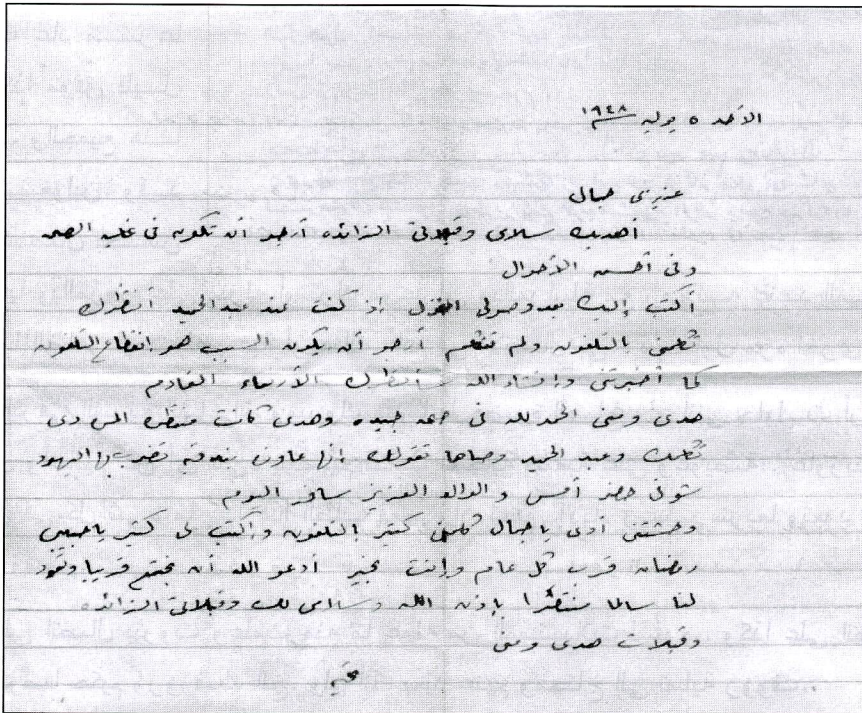 الأحد ٥ يوليه سنة ١٩٤٨
عزيزى جمال
أهديك سلامى وقبلاتى الزائده أرجو أن تكون فى غاية الصحه
وفى أحسن الأحوال
أكتب إليك بعد وصولى المنزل إذ كنت عند عبد الحميد أنتظرك
تكلمنى بالتلفون ولم تتكلم أرجو أن يكون السبب هو إنقطاع التلفون
كما أخبرتنى وإنشاء الله أنتظرك الأربعاء القادم
هدى ومنى الحمد لله فى صحه جيده وهدى كانت منتظره المس دى
تكلمك وعبد الحميد وصاها تقولك إنها عاوزه بندقيه تضرب بها اليهود
شوقى حضر أمس و الوالد العزيز سافر اليوم
وحشتنى أوى يا جمال كلمنى كتير بالتلفون وإكتب لى كتير يا حبيبى
رمضان قرب كل عام وإنت بخير أدعو الله أن نجتمع قريبا وتعود
لنا سالما منتصرا بإذن الله وسلامى لك وقبلاتى الزائده
وقبلات هدى ومنى
تحيه